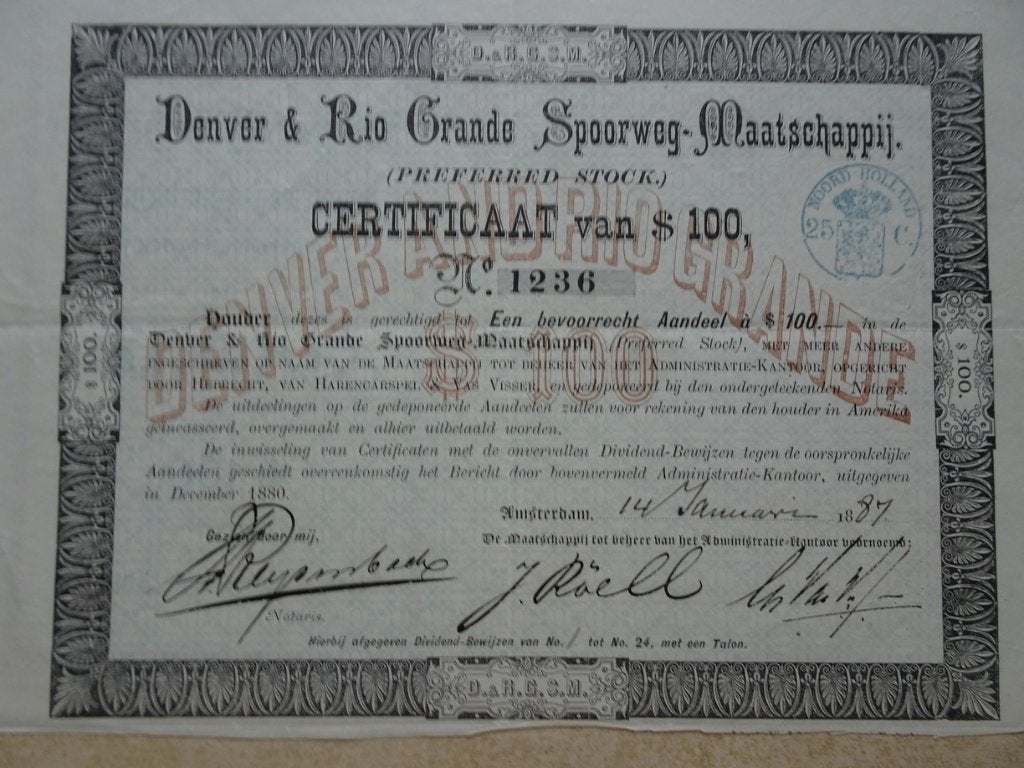 D. & R. G. S. M.
Denver & Rio Grande Spoorweg-Maatschappij.
(PREFERRED STOCK.)
NOORD HOLLAND
25 C.
CERTIFICAAT van $ 100,
DENVER AND RIO GRANDE
No. 1236
$ 100
$ 100.
$ 100.
Houder dezes is gerechtigd tot Een bevoorrecht Aandeel à $ 100.— in de
Denver & Rio Grande Spoorweg-Maatschappij (Preferred Stock), MET MEER ANDERE
INGESCHREVEN OP NAAM VAN DE MAATSCHAPPIJ TOT BEHEER VAN HET ADMINISTRATIE-KANTOOR, OPGERICHT
DOOR HUBRECHT, VAN HARENCARSPEL & VAS VISSER, en gedeponeerd bij den ondergeteekenden Notaris.
De uitdeelingen op de gedeponeerde Aandeelen zullen voor rekening van den houder in Amerika
geïncasseerd, overgemaakt en alhier uitbetaald worden.
De inwisseling van Certificaten met de onvervallen Dividend-Bewijzen tegen de oorspronkelijke
Aandeelen geschiedt overeenkomstig het Bericht door bovenvermeld Administratie-Kantoor, uitgegeven
in December 1880.
Amsterdam, 14 Januari 1887.
Gezien door mij,
De Maatschappij tot beheer van het Administratie-Kantoor voornoemd:
J. Röell
Notaris.
Hierbij afgegeven Dividend-Bewijzen van No. 1 tot No. 24, met een Talon.
D. & R. G. S. M.